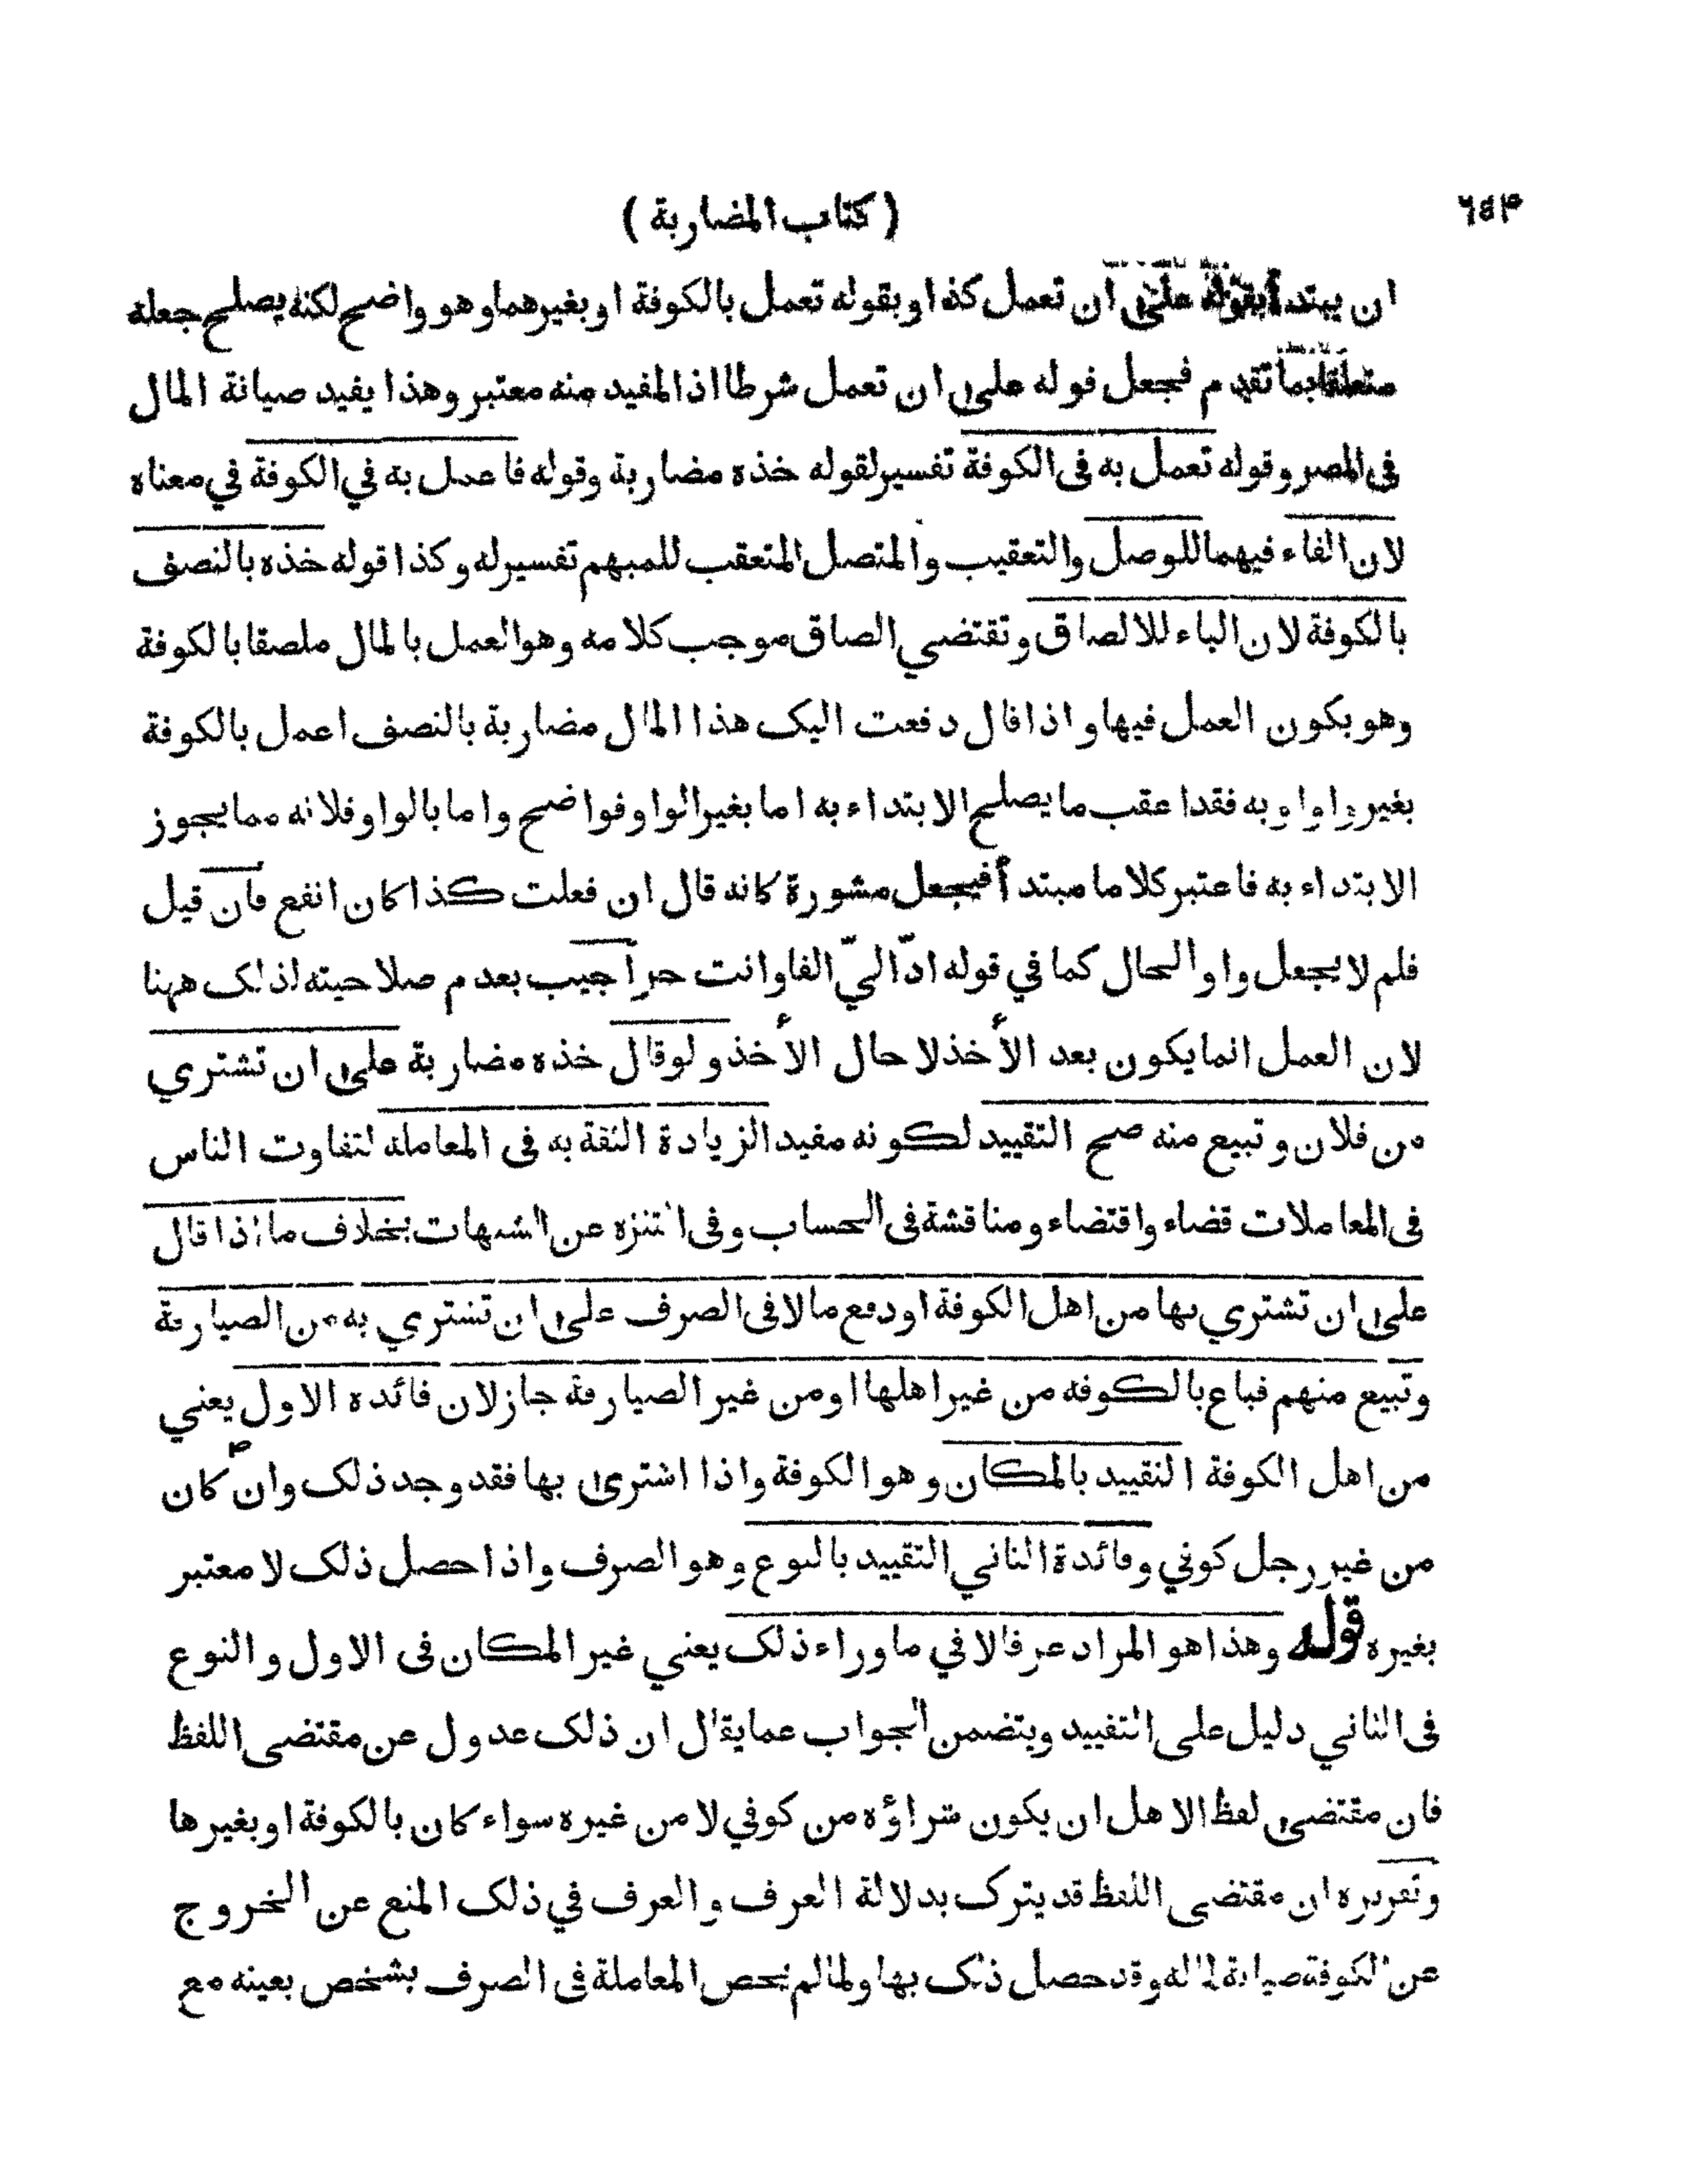 ٦٤٣ ( كتاب المضاربة )
ان يبتدأ بقوله على ان تعمل كذا وبقوله تعمل بالكوفة او بغيرهما وهو واضح لكنه يصلح جعله
متعلقا بما تقدم فيجعل قوله على ان تعمل شرطا اذ المفيد منه معتبر وهذا يفيد صيانة المال
فى المصر وقوله تعمل به فى الكوفة تفسير لقوله خذه مضاربة وقوله فاعمل به في الكوفة في معناه
لان الفاء فيهما للوصل والتعقيب والمتصل المتعقب للمبهم تفسير له وكذا قوله خذه بالنصف
بالكوفة لان الباء للالصاق وتقتضي الصاق موجب كلامه وهو العمل بالمال ملصقا بالكوفة
وهو بكون العمل فيها واذا قال دفعت اليك هذا المال مضاربة بالنصف اعمل بالكوفة
بغير واو او به فقد اعقب ما يصلح الابتداء به اما بغير الواو فواضح واما بالواو فلانه مما يجوز
الابتداء به فاعتبر كلاما مبتدأ فيجعل مشورة كانه قال ان فعلت كذا كان انفع فان قيل
فلم لا يجعل واو الحال كما في قوله ادّ اليّ الفا وانت حر أجيب بعدم صلاحيته لذلك ههنا
لان العمل انما يكون بعد الأخذ لا حال الأخذ ولو قال خذه مضاربة على ان تشتري
من فلان وتبيع منه صح التقييد لكونه مفيد الزيادة الثقة به فى المعاملة لتفاوت الناس
فى المعاملات قضاء واقتضاء ومناقشة فى الحساب وفى التنزه عن الشبهات بخلاف ما اذا قال
على ان تشتري بها من اهل الكوفة او دفع مالا فى الصرف على ان تشتري به من الصيارفة
وتبيع منهم فباع بالكوفه من غير اهلها او من غير الصيارفة جاز لان فائده الاول يعني
من اهل الكوفة التقييد بالمكان وهو الكوفة واذا اشترى بها فقد وجد ذلك وان كان
من غير رجل كوفي وفائدة الثاني التقييد بالنوع وهو الصرف واذا حصل ذلك لا معتبر
بغيره قوله وهذا هو المراد عرفا لا في ما وراء ذلك يعني غير المكان فى الاول والنوع
فى الثاني دليل على التقييد ويتضمن الجواب عما يقال ان ذلك عدول عن مقتضى اللفظ
فان مقتضى لفظ الاهل ان يكون شراؤه من كوفي لا من غيره سواء كان بالكوفة او بغيرها
وتقريره ان مقتضى اللفظ قد يترك بدلالة العرف والعرف في ذلك المنع عن الخروج
عن الكوفة صيانة لماله وقد حصل ذلك بها ولما لم يخص المعاملة فى الصرف بشخص بعينه مع